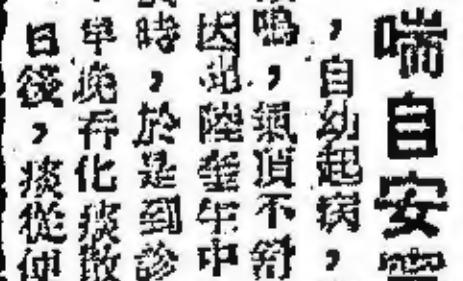 喘自安
，自幼起病，
鳴，氣頂不舒
因此陸年中
時，於是到診
早晚吞化痰散
日後，痰從便